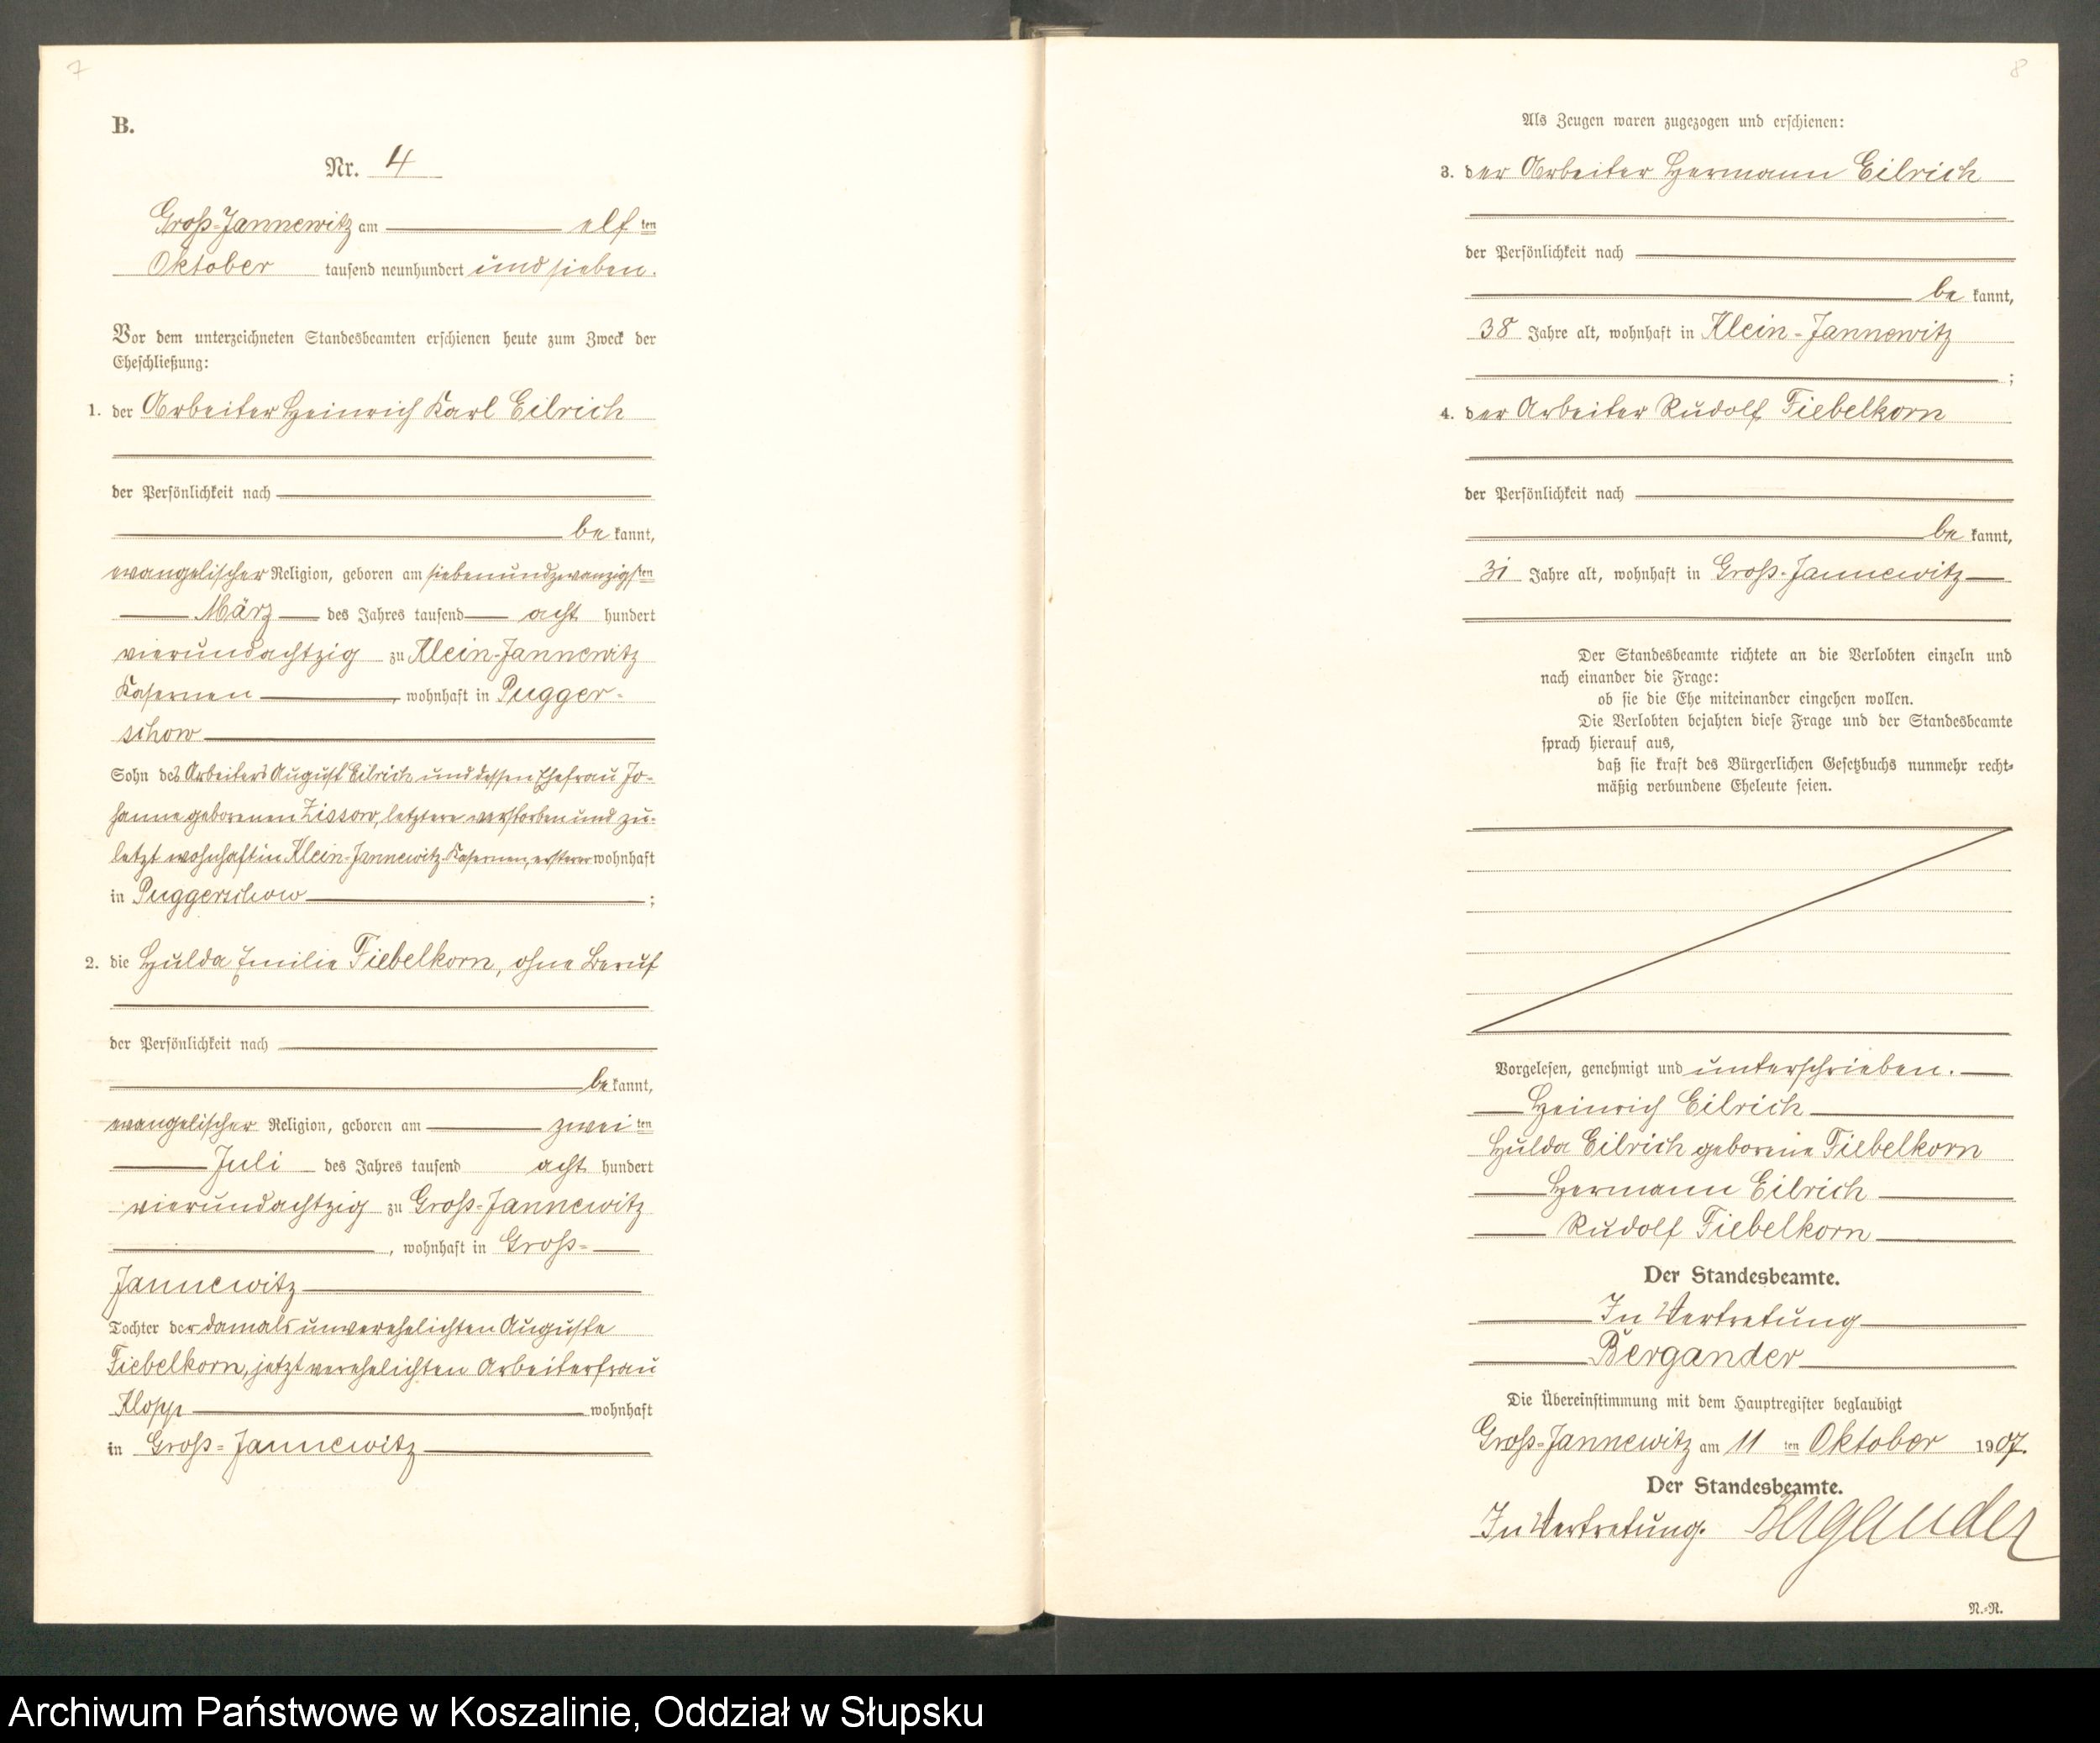 7
B.
Nr. 4
Groß-Jannewitz am elf ten
Oktober tausend neunhundert und sieben.
Vor dem unterzeichneten Standesbeamten erschienen heute zum Zweck der
Eheschließung:
1. der Arbeiter Heinrich Karl Eilrich
der Persönlichkeit nach
be kannt,
evangelischer Religion, geboren am siebenundzwanzigsten
März des Jahres tausend acht hundert
vierundachtzig zu Klein-Jannewitz
Kasernen, wohnhaft in Pugger-
schow
Sohn des Arbeiters August Eilrich und dessen Ehefrau Jo-
hanne geborenen Zissow, letztere verstorben und zu-
letzt wohnhaft in Klein-Jannewitz-Kasernen, ersterer wohnhaft
in Puggerschow ;
2. die Hulda Emilie Fiebelkorn, ohne Beruf
der Persönlichkeit nach
be kannt,
evangelischer Religion, geboren am zwei ten
Juli des Jahres tausend acht hundert
vierundachtzig zu Groß-Jannewitz
, wohnhaft in Groß-
Jannewitz
Tochter der damals unverehelichten Auguste
Fiebelkorn, jetzt verehelichten Arbeiterfrau
Klopp wohnhaft
in Groß-Jannewitz
8
Als Zeugen waren zugezogen und erschienen:
3. der Arbeiter Hermann Eilrich
der Persönlichkeit nach
be kannt,
38 Jahre alt, wohnhaft in Klein-Jannewitz
;
4. der Arbeiter Rudolf Fiebelkorn
der Persönlichkeit nach
be kannt,
31 Jahre alt, wohnhaft in Groß-Jannewitz
Der Standesbeamte richtete an die Verlobten einzeln und
nach einander die Frage:
ob sie die Ehe miteinander eingehen wollen.
Die Verlobten bejahten diese Frage und der Standesbeamte
sprach hierauf aus,
daß sie kraft des Bürgerlichen Gesetzbuchs nunmehr recht-
mäßig verbundene Eheleute seien.
Vorgelesen, genehmigt und unterschrieben.
Heinrich Eilrich
Hulda Eilrich geborene Fiebelkorn
Hermann Eilrich
Rudolf Fiebelkorn
Der Standesbeamte.
In Vertretung
Bergander
Die Übereinstimmung mit dem Hauptregister beglaubigt
Groß-Jannewitz am 11 ten Oktober 1907.
Der Standesbeamte.
In Vertretung. Bergander
N.-R.
Archiwum Państwowe w Koszalinie, Oddział w Słupsku